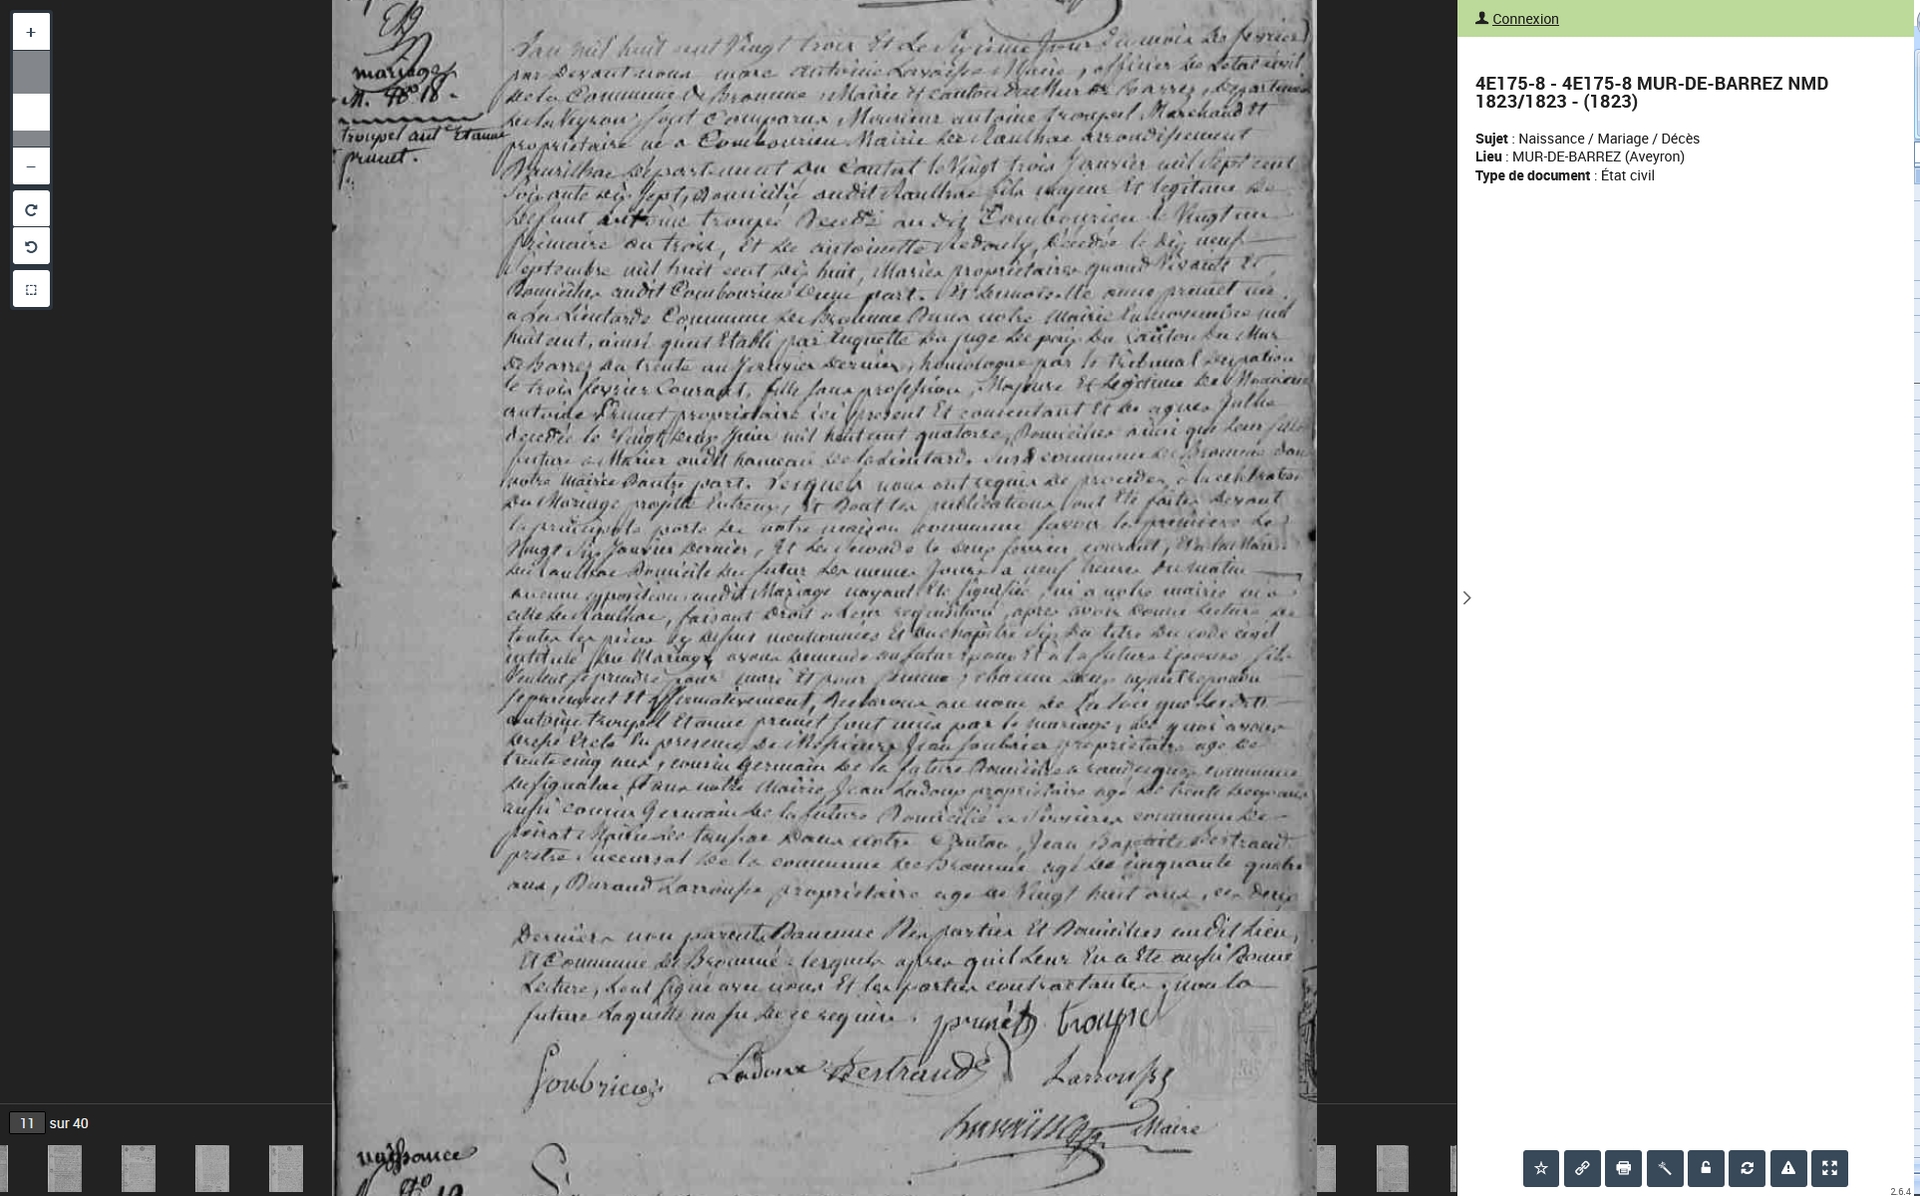 Connexion
4E175-8 - 4E175-8 MUR-DE-BARREZ NMD
1823/1823 - (1823)
Sujet : Naissance / Mariage / Décès
Lieu : MUR-DE-BARREZ (Aveyron)
Type de document : État civil
mariage
N. 18.
troupel ant Et anne
prunet.
L'an mil huit cent Vingt trois Et Le Sixieme Jour du mois de fevrier
par Devant nous marc antoine Maire, officier de Letat civil
de la Commune de Bromme, Mairie Et canton de Mur de Barrez, Departement
de Laveyron, sont Comparus, Monsieur antoine troupel Marchand Et
propriétaire né a Combourieu Mairie de Raulhac arrondissement
Daurilhac Département du Cantal le Vingt trois Janvier mil Sept cent
Soixante dix Sept, Domicilié audit Raulhac fils majeur Et legitime de
defunt antoine troupel Decedé au dit Combourieu le Vingt un
frimaire an trois, Et de antoinette decedée le dix neuf
Septembre mil huit cent dix huit, Mariés propriétaires quand Vivants Et
Domiciliés audit Combourieu D'une part. Et Demoiselle anne prunet née
a La Lieutarde Commune de Bromme Dans notre Mairie mil
huit cent, ainsi quil Etabli par Enquette du juge de paix Du Canton Du Mur
de Barrez du trente un Janvier dernier, homologué par le tribunal
le trois fevrier Courant, fille sans profession, Majeure Et Legitime de Monsieur
antoine Prunet propriétaire ici présent Et consentant Et de agnes Julhe
decedée le Vingt deux Juin mil huit cent quatorze, Domiciliés ainsi que leur fille
future a Marier audit hameau de la Commune de Bromme dans
notre mairie Dautre part. Lesquels nous ont requis de proceder a la celebration
du Mariage projetté Entreux, Et Dont les publications ont Eté faites devant
la principale porte de notre maison commune savoir la premiere le
Vingt Six Janvier dernier, Et la Seconde le deux fevrier courant,
de Raulhac Domicile du futur Les memes Jours a neuf heures du matin
aucune opposition audit Mariage nayant Eté Signifiée, ni a notre mairie ni a
celle de Raulhac, faisant Droit a leur requisition, apres avoir Donné lecture de
toutes les pièces cy dessus mentionnées Et du chapitre six du titre du code civil
intitulé du Mariage, avons demandé au futur epoux Et a la future Epouse sils
Veulent se prendre pour mari Et pour femme, chacun deux ayant repondu
separement Et affirmativement, declarons au nom de La loi que Les dits
antoine troupel Et anne prunet sont unis par le mariage, de quoi avons
dressé acte En presence de Messieurs Jean Soubrier propriétaire agé de
trente cinq ans, cousin Germain de la future Domicilié a commune
dans notre Mairie, Jean Ladoux propriétaire agé de trente
aussi cousin Germain de la future Domicilié a commune de
Mairie de Dans notre Canton, Jean Baptiste Bertrand
prêtre Succursal de la commune de Bromme agé de cinquante quatre
ans, Durand Larrousse propriétaire agé de Vingt huit ans, ces deux
Derniers non parents Daucune Des parties Et Domiciliés audit Lieu,
Et Commune de Bromme. lesquels apres quil Leur En a Eté aussi Donné
Lecture, Sont signé avec nous Et les parties contractantes, non la
future Laquelle na su de ce requise.
prunet troupel
Soubrier Ladoux Bertrand Larrousse
Maire
naissance
11 sur 40
2.6.4